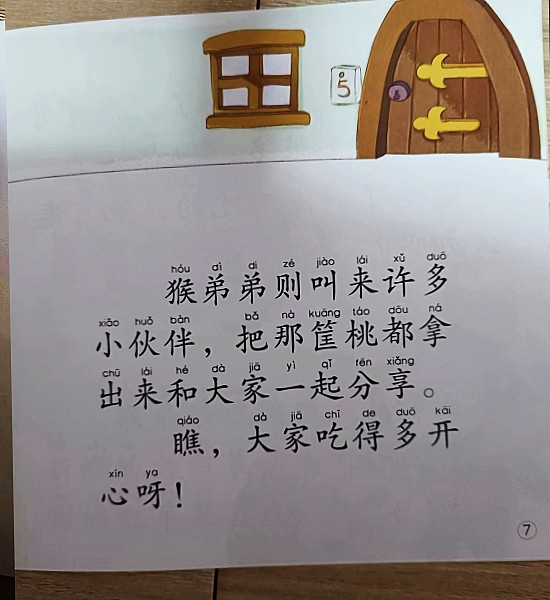 5
hóu dì di zé jiào lái xǔ duō
猴弟弟则叫来许多
xiǎo huǒ bàn bǎ nà kuāng táo dōu ná
小伙伴，把那筐桃都拿
chū lái hé dà jiā yì qǐ fēn xiǎng
出来和大家一起分享。
qiáo dà jiā chī de duō kāi
瞧，大家吃得多开
xīn ya
心呀！
7